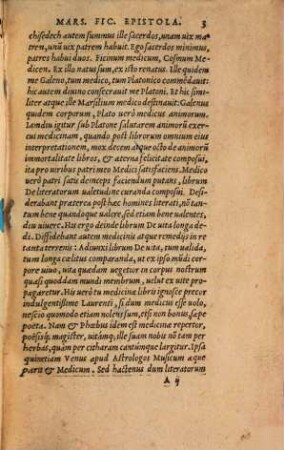 MARS. FIC. EPISTOLA. 3
chisedech autem summus ille sacerdos, unam uix ma
trem, unū uix patrem habuit. Ego sacerdos minimus,
patres habui duos. Ficinum medicum, Cosmum Me-
dicen. Ex illo natus sum, ex isto renatus. Ille quidem
me Galeno, tum medico, tum Platonico commēdauit:
hic autem diuino consecrauit me Platoni. Et hic simi-
liter atque ille Marsilium medico destinauit: Galenus
quidem corporum, Plato uerò medicus animorum.
Iamdiu igitur sub Platone salutarem animorū exer-
cui medicinam, quando post librorum omnium eius
interpretationem, mox decem atque octo de animorū
immortalitate libros, & æterna felicitate composui,
ita pro uiribus patri meo Medici satisfaciens. Medico
uerò patri satis deinceps faciendum putans, librum
De literatorum ualetudine curanda composui. Desi-
derabant præterea post hæc homines literati, nō tan-
tum bene quandoque ualere, sed etiam bene ualentes,
diu uiuere. His ergo deinde librum De uita longa de-
di. Diffidebant autem medicinis atque remedijs in re
tanta terrenis: Adiunxi librum De uita, tum ualida,
tum longa cœlitus comparanda, ut ex ipso mūdi cor-
pore uiuo, uita quædam uegetior in corpus nostrum
quasi quoddam mundi membrum, uelut ex uite pro-
pagaretur. His uerò tu medicinæ libris ignosce precor
indulgentissime Laurenti, si dum medicus esse uolo,
nescio quomodo etiam nolens sum, etsi non bonus, sæpe
poeta. Nam & Phœbus idem est medicinæ repertor,
poësisq́; magister, uitamq́; ille suam nobis nō tam per
herbas, quàm per citharam cantúmque largitur. Ipsa
quinetiam Venus apud Astrologos Musicum æque
parit & Medicum. Sed hactenus dum literatorum
A ij